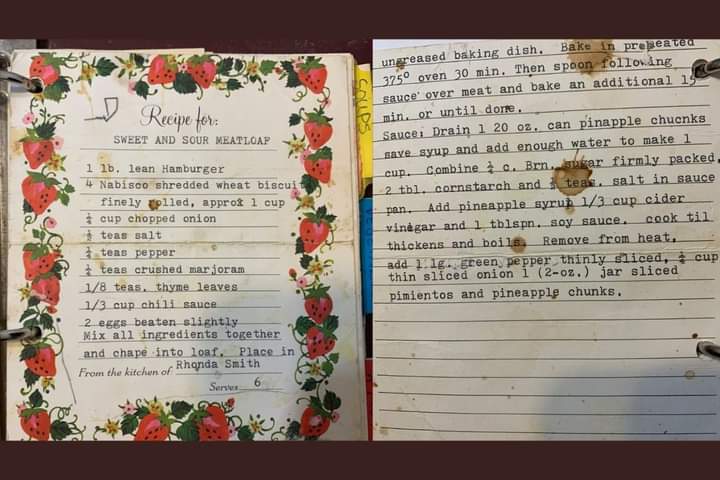 Recipe for:
SWEET AND SOUR MEATLOAF
1 lb. lean Hamburger
4 Nabisco shredded wheat biscui
finely rolled, approx 1 cup
cup chopped onion
teas salt
teas pepper
teas crushed marjoram
1/8 teas. thyme leaves
1/3 cup chili sauce
2 eggs beaten slightly
Mix all ingredients together
and chape into loaf. Place in
From the kitchen of Rhonda Smith
Serves 6
SOUPS
ungreased baking dish. Bake in preheated
375° oven 30 min. Then spoon following
sauce over meat and bake an additional 15
min. or until done.
Sauce: Drain 1 20 oz. can pinapple chucnks
save syup and add enough water to make 1
cup. Combine c. Brn. sugar firmly packed.
2 tbl. cornstarch and teas. salt in sauce
pan. Add pineapple syrup 1/3 cup cider
vinegar and 1 tblspn. soy sauce. cook til
thickens and boils. Remove from heat,
add 1 lg. green pepper thinly sliced, cup
thin sliced onion 1 (2-oz.) jar sliced
pimientos and pineapple chunks.